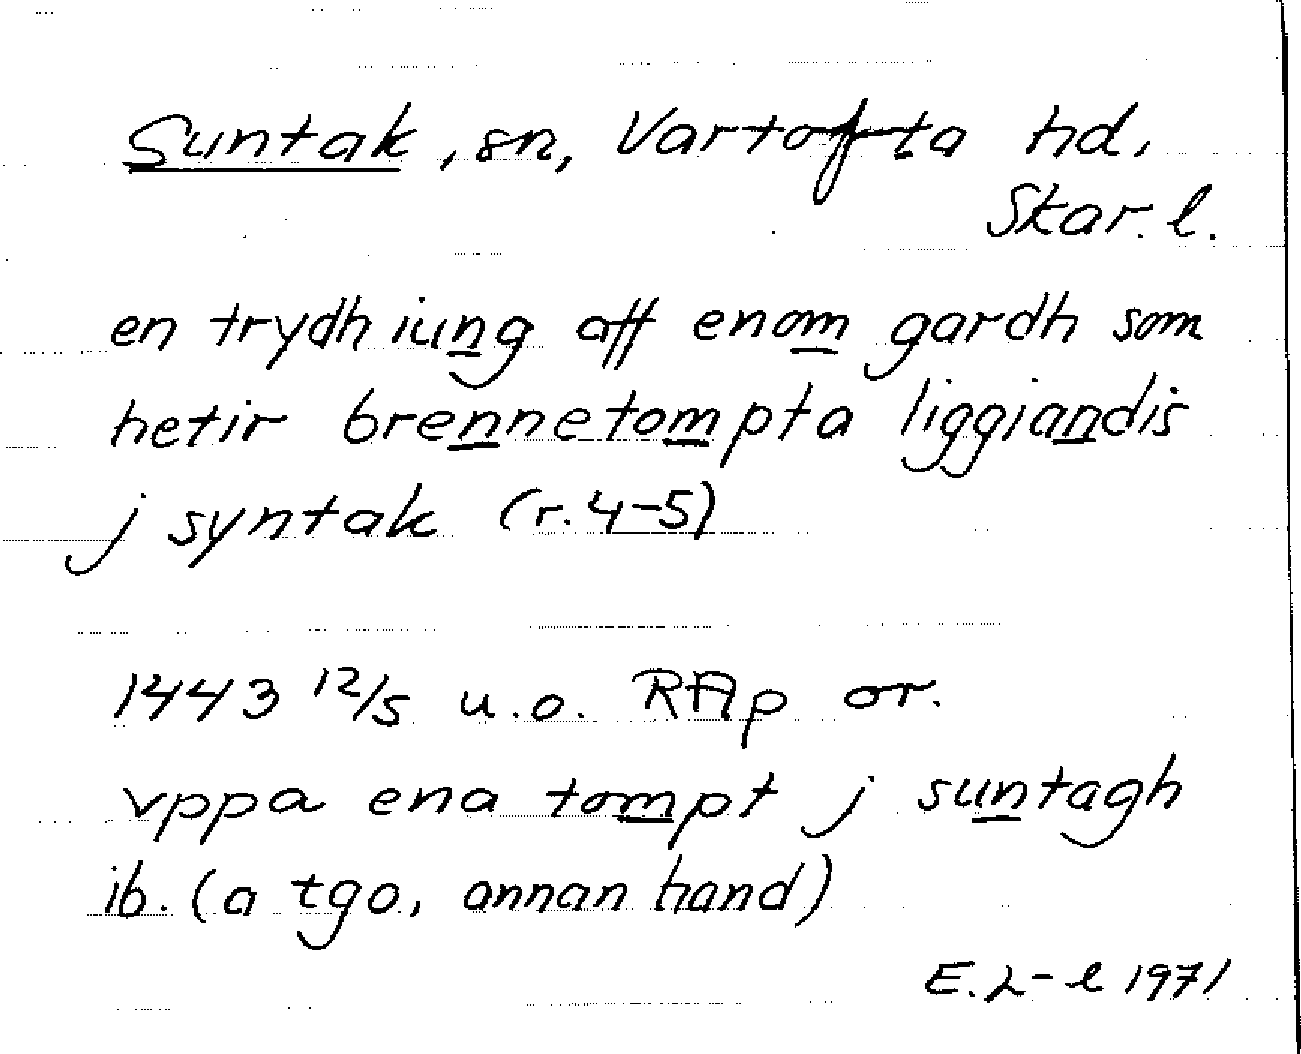 Suntak, sn, Vartofta hd,
Skar. l.
en trydhiung aff enom gardh som
hetir brennetompta liggiandis
j syntak (r. 4-5)
1443 12/5 u.o. RAp or.
vppa ena tompt j suntagh
ib. (a tgo, annan hand)
E. L-l 1971